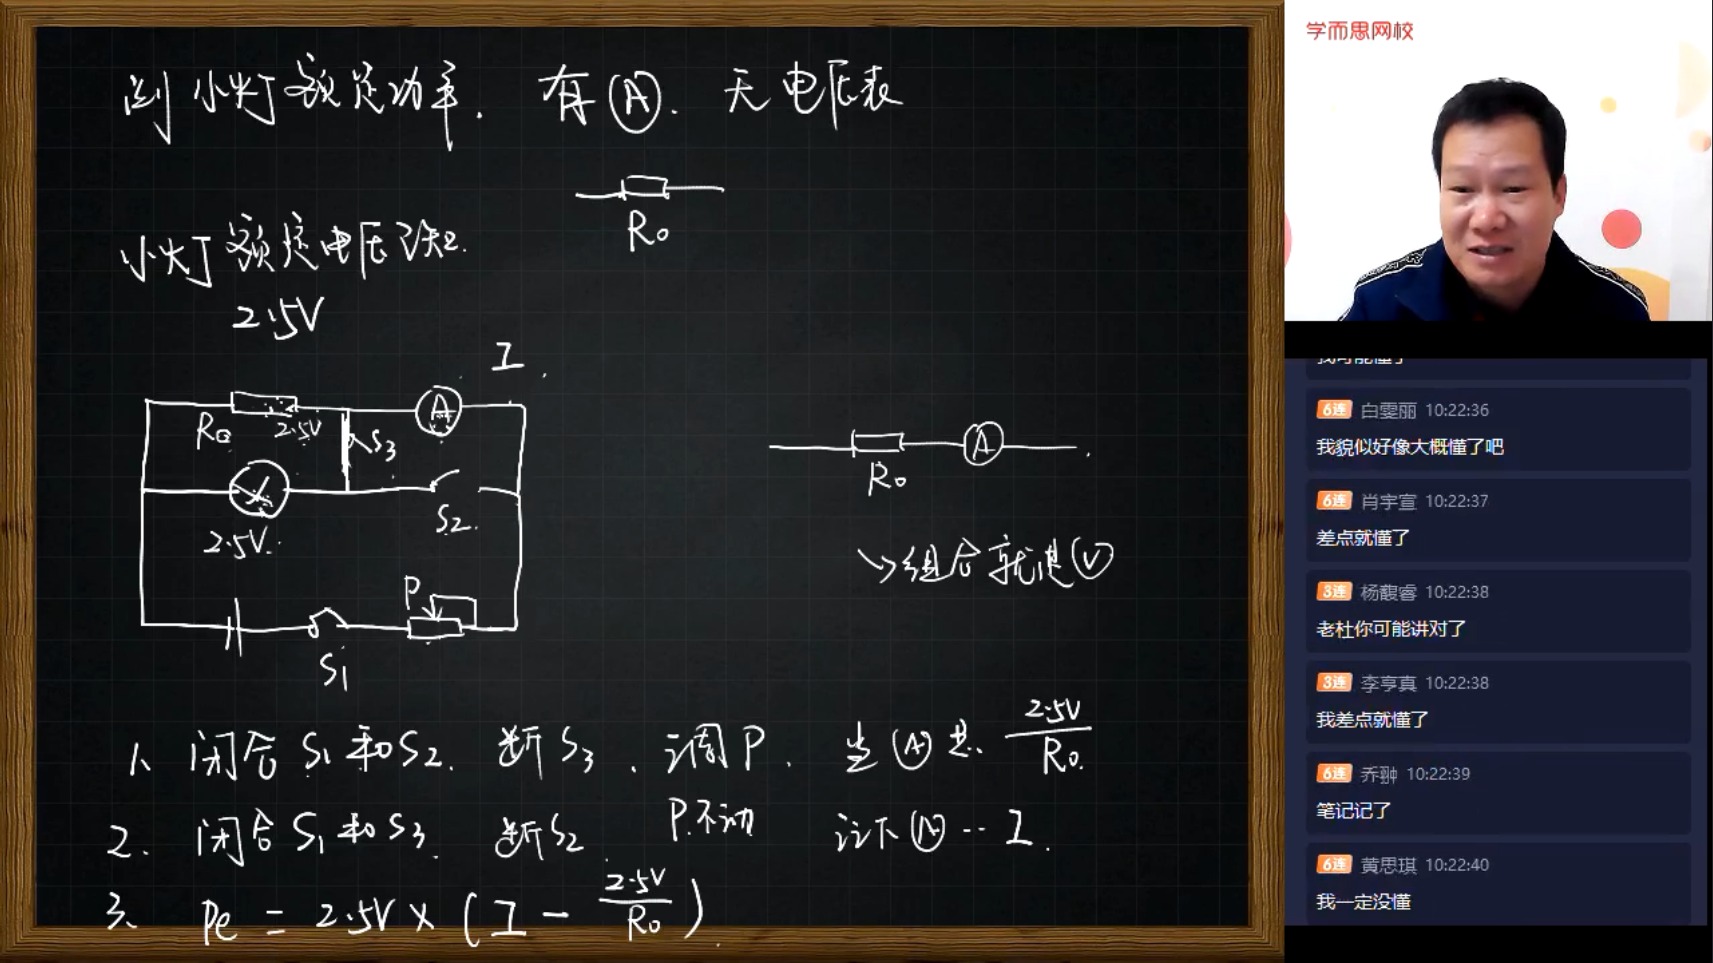 测小灯额定功率. 有Ⓐ. 无电压表
R₀
小灯额定电压已知.
2.5V
I
R₀ 2.5V S₃ A
2.5V S₂
P
S₁
R₀ A
↘组合就是Ⓥ
1、闭合S₁和S₂. 断S₃. 调P. 当Ⓐ是、2.5V/R₀
2、闭合S₁和S₃. 断S₂ P.不动 记下Ⓐ…I.
3、Pe = 2.5V × (I - 2.5V/R₀)
学而思网校
6连 白雯丽 10:22:36
我貌似好像大概懂了吧
6连 肖宇宣 10:22:37
差点就懂了
3连 杨馥睿 10:22:38
老杜你可能讲对了
3连 李亨真 10:22:38
我差点就懂了
6连 乔翀 10:22:39
笔记记了
6连 黄思琪 10:22:40
我一定没懂